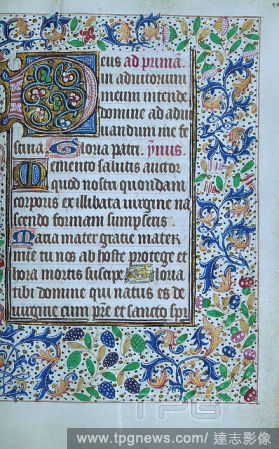 Deus ad primam
in adiutorium
meum intende
domine ad adiu
uandum me fe
stina Gloria patri. ymnus
Memento salutis auctor
quod nostri quondam
corporis ex illibata uirgine na
scendo formam sumpseris.
Maria mater gratie mater
mie tu nos ab hoste protege et
hora mortis suscipe Gloria
tibi domine qui natus es de
uirgine cum pre et sancto spu
TPG
www.tpgnews.com/ 達志影像